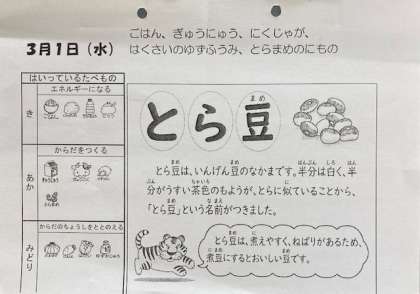 ごはん、ぎゅうにゅう、にくじゃが、
3月1日（水）
はくさいのゆずふうみ、とらまめのにもの
はいっているたべもの
エネルギーになる
き
からだをつくる
あか
からだのちょうしをととのえる
みどり
まめ
とら豆
まめ まめ はんぶん しろ はん
とら豆は、いんげん豆のなかまです。半分は白く、半
ぶん ちゃいろ に
分がうすい茶色のもようが、とらに似ていることから、
まめ なまえ
「とら豆」という名前がつきました。
まめ に
とら豆は、煮えやすく、ねばりがあるため、
にまめ まめ
煮豆にするとおいしい豆です。